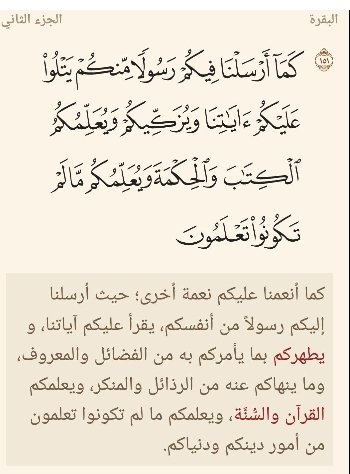 البقرة الجزء الثاني
كَمَآ أَرْسَلْنَا فِيكُمْ رَسُولًا مِّنكُمْ يَتْلُوا۟ ١٥١
عَلَيْكُمْ ءَايَٰتِنَا وَيُزَكِّيكُمْ وَيُعَلِّمُكُمُ
ٱلْكِتَٰبَ وَٱلْحِكْمَةَ وَيُعَلِّمُكُم مَّا لَمْ
تَكُونُوا۟ تَعْلَمُونَ
كما أنعمنا عليكم نعمة أخرى؛ حيث أرسلنا
إليكم رسولاً من أنفسكم، يقرأ عليكم آياتنا، و
يطهركم بما يأمركم به من الفضائل والمعروف،
وما ينهاكم عنه من الرذائل والمنكر، ويعلمكم
القرآن والسُّنَّة، ويعلمكم ما لم تكونوا تعلمون
من أمور دينكم ودنياكم.